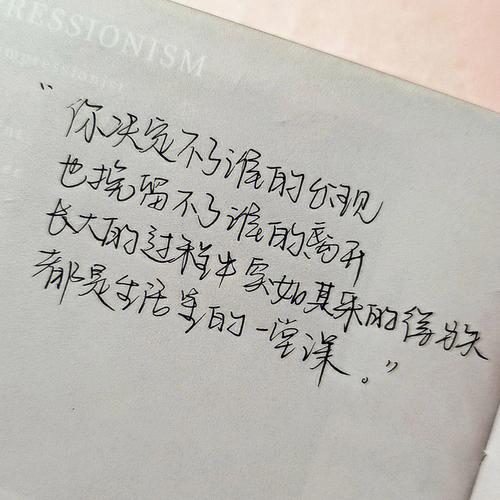 RESSIONISM
impressionist
“你决定不了谁的出现
也挽留不了谁的离开
长大的过程中突如其来的得与失
都是生活里的一堂课。”